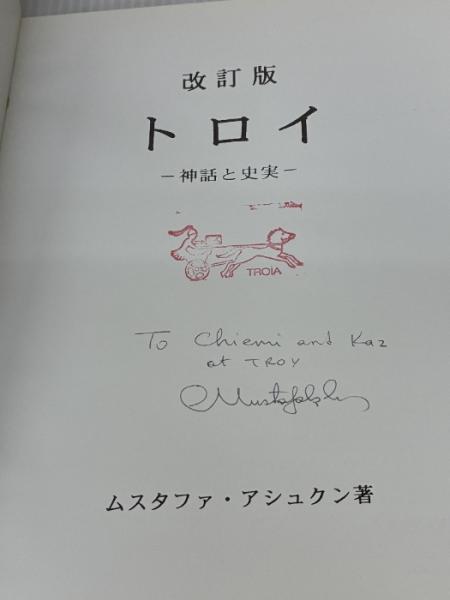 改訂版
トロイ
－神話と史実－
TROIA
To Chiemi and Kaz
at TROY
ムスタファ・アシュクン著